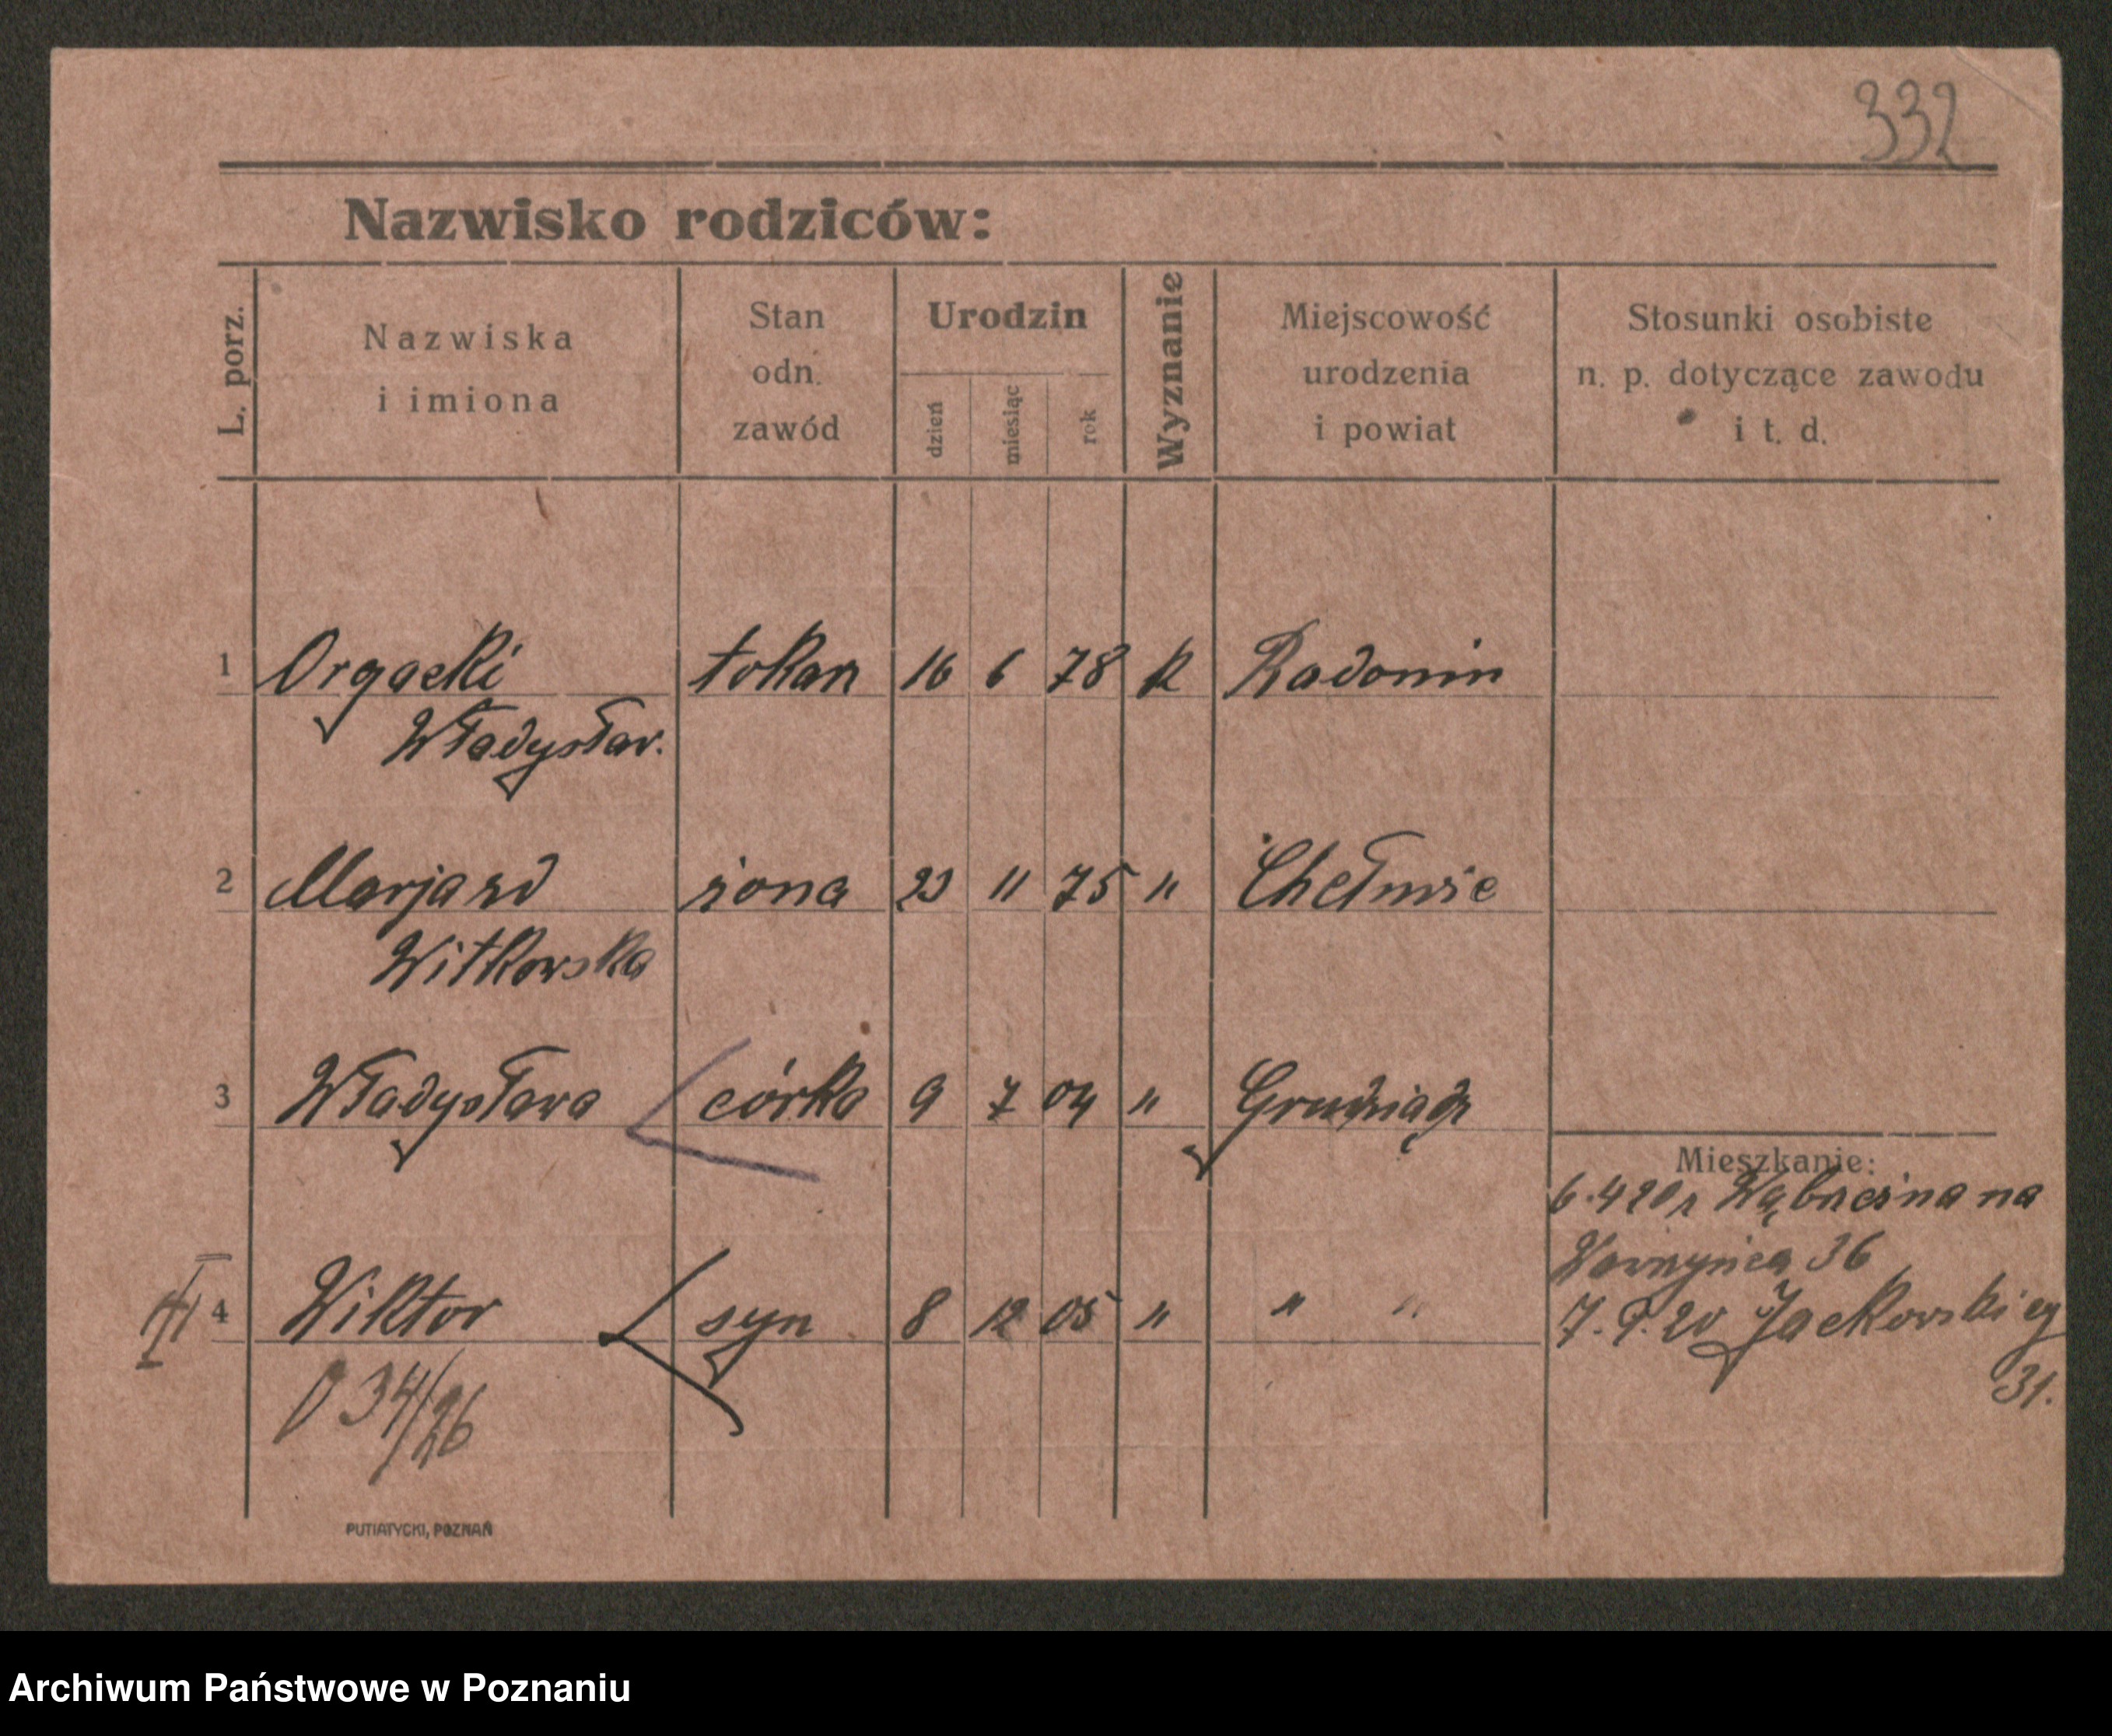 332
Nazwisko rodziców:
L. porz.
Nazwiska
i imiona
Stan
odn.
zawód
Urodzin
dzień
miesiąc
rok
Wyznanie
Miejscowość
urodzenia
i powiat
Stosunki osobiste
n. p. dotyczące zawodu
i t. d.
1 Orgacki tokarz 16 6 78 k Radomin
Władysław.
2 Marja zd żona 23 11 75 " Chełmże
Witkowska
3 Władysława córka 9 7 04 " Grudziądz
Mieszkanie:
6.4 20 r Wąbrzeźna na
36
4 Wiktor syn 8 12 05 " " "
7. 9. 20 Jackowskieg
31.
O 34/26
PUTIATYCKI, POZNAŃ
Archiwum Państwowe w Poznaniu